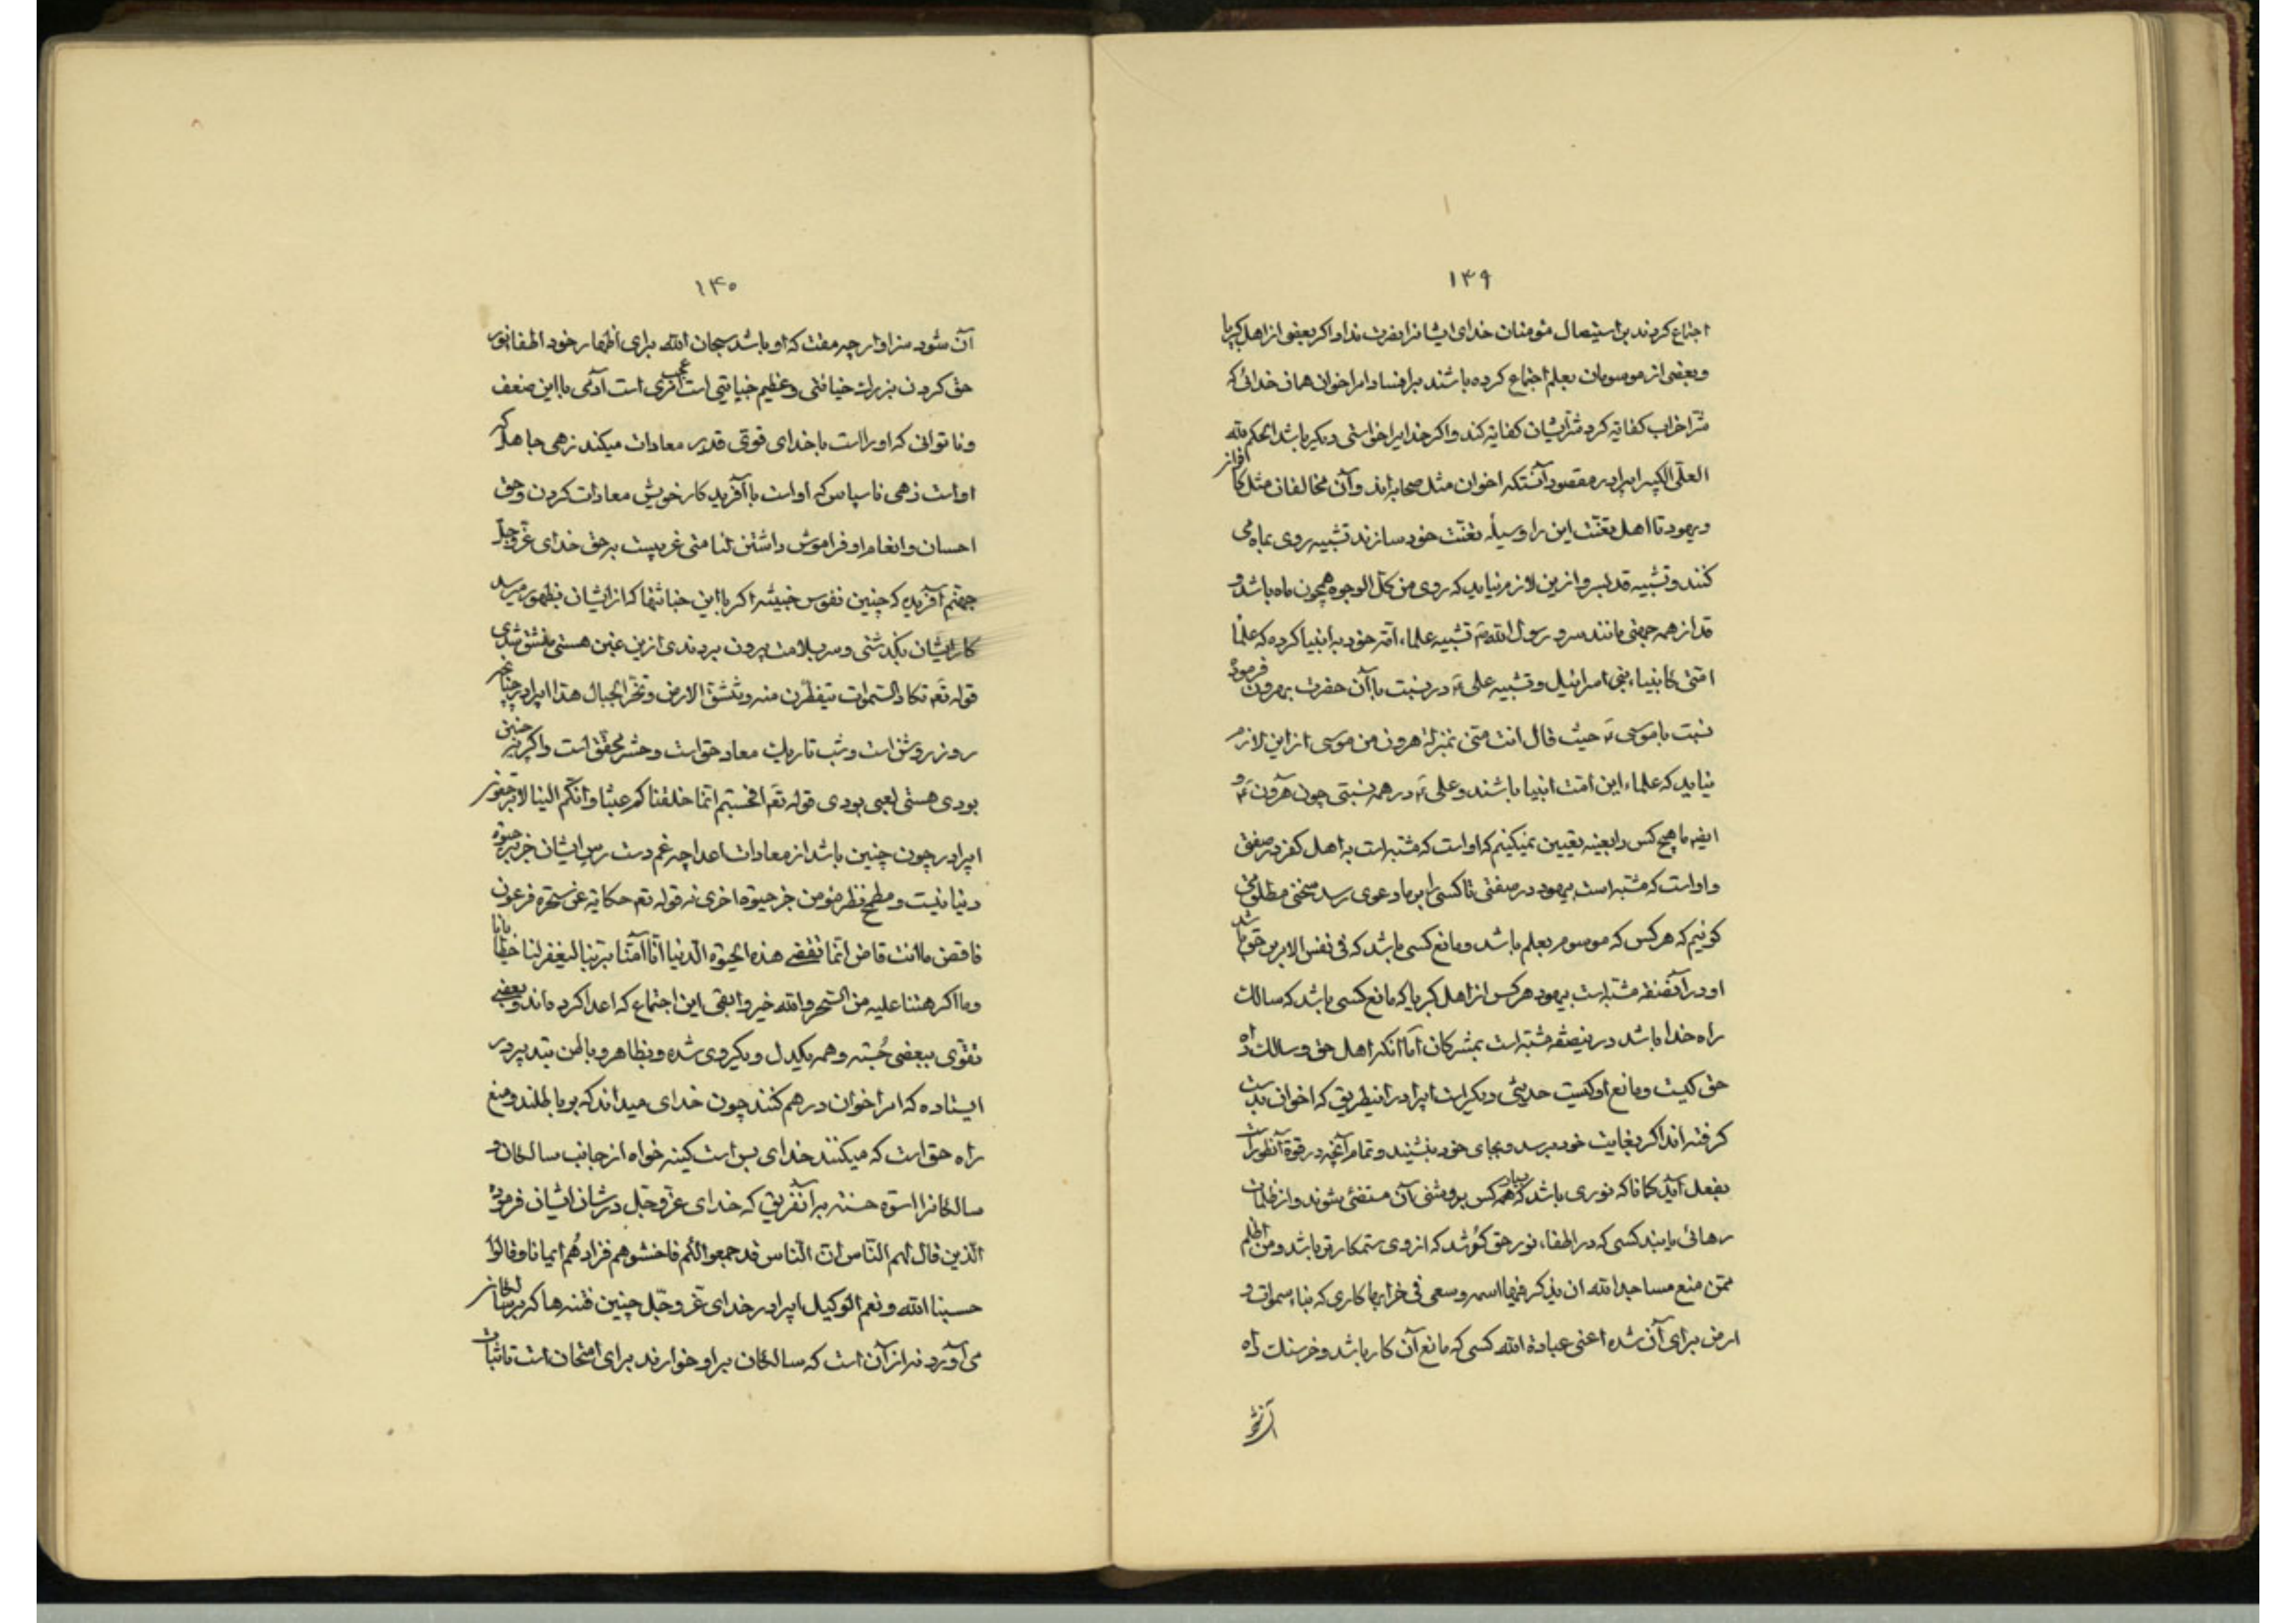 ۱۳۹
اجتماع کردند بر استیصال مؤمنان خدای ایشانرا نصرت نداد اکر بعضی از اهل کبریا
و بعضی از موسومان بعلم اجتماع کرده باشند بر افساد امر اخوان همان خدائی که
شر احزاب کفایة کرد شر ایشان کفایة کند و اکر خدایرا خواستی دیکر باشد الحکم لله
العلی الکبیر ایرادر مقصود آنستکه اخوان مثل صحابه‌اند و آن مخالفان مثل کافران
و یهود تا اهل تعنت این را وسیلهٔ تعنت خود سازند تشبیه روی بماه می
کنند و تشبیه قد بسرو ازین لازم نیاید که روی من کل الوجوه همچون ماه باشد و
قد از همه جهتی مانند سرو رسول الله ص تشبیه علماء امة خود به انبیا کرده که علماء
امتی کانبیاء بنی اسرائیل و تشبیه علی ع در نسبت با آن حضرت بهرون فرموده
نسبت با موسی ع حیث قال انت منی بمنزلة هرون من موسی از این لازم
نیاید که علماء این امت انبیا باشند و علی ع در همه نسبتی چون هرون ع و
ایضا ما هیچ کس را بعینه تعیین نمیکنیم که او است که مشبه است به اهل کفر در صفتی
و او است که مشبه است بیهود در صفتی تا کسی را بر ما دعوی رسد سخنی مطلق می
کوئیم که هر کس که موسوم بعلم باشد و مانع کسی باشد که فی نفس الامر بر حق باشد
او در آنصفة مشبه است بیهود هر کس از اهل کبریا که مانع کسی باشد که سالک
راه خدا باشد در اینصفة مشبه است بمشرکان اما آنکه اهل حق و سالک راه
حق کیست و مانع او کیست حدیثی دیکر است ایرادر اینطریق که اخوان بدست
کرفته‌اند اکر بغایت خود برسد و بجای خود بنشیند و تمام آنچه در قوة آنطور است
بفعل آید کاناکه نوری باشد که همه کس بروشنی آن مستضئی شوند و از ظلمات
رهائی یابند کسی که در اطفاء نور حق کوشد که از وی ستمکارتر باشد و من اظلم
ممن منع مساجد الله ان یذکر فیها اسمه و سعی فی خرابها کاری که بناء سموات و
ارض برای آن شده اعنی عبادة الله کسی که مانع آن کار باشد و خرسنک راه
۱۴۰
آن شود سزاوار چه مقت که او باشد سبحان الله برای اظهار خود اطفا نور
حق کردن بزرک خیانتی و عظیم جنایتی است عجب امری است آدمی با این ضعف
و ناتوانی که او راست با خدای قوی قدیر معادات میکند زهی جاهل که
او است زهی ناسپاس که او است با آفریدکار خویش معادات کردن و حق
احسان و انعام او فراموش داشتن لنا منی غریبست بر حق خدای عز و جل
جهنم آفریده که چنین نفوس خبیثه اکر با این خباثتها که از ایشان بظهور میرسد
کار ایشان بکذشتی و سر بسلامت بیرون بردندی ازین غبن هستی منشق شدی
قوله تع تکاد السموات یتفطرن منه و تنشق الارض و تخر الجبال هدا ایرادر چنانچه
روز روشن است و شب تاریک معاد حق است و حشر محقق است و اکر نه چنین
بودی هستی لعبی بودی قوله تع افحسبتم انما خلقناکم عبثا و انکم الینا لا ترجعون
ایرادر چون چنین باشد از معادات اعدا چه غم دست رس ایشان جز بر حیوة
دنیا نیست و مطمح نظر مؤمن جز حیوة اخری نه قوله تع حکایة عن سحرة فرعون
فاقض ما انت قاض انما تقضی هذه الحیوة الدنیا انا آمنا بربنا لیغفر لنا خطایانا
و ما اکرهتنا علیه من السحر و الله خیر و ابقی این اجتماع که اعدا کرده‌اند و بعضی
تقوی ببعضی جسته و همه یکدل و یکروی شده و بظاهر و باطن بتدبیر در
ایستاده که امر اخوان در هم کنند چون خدای میداند که بر باطلند و منع
راه حق است که میکنند خدای بس است کینه خواه از جانب سالکان و
سالکانرا اسوه حسنه برآنفریق که خدای عز و جل در شان ایشان فرموده
الذین قال لهم الناس ان الناس قد جمعوا لکم فاخشوهم فزادهم ایمانا و قالوا
حسبنا الله و نعم الوکیل ایرادر خدای عز و جل چنین فتنه‌ها که بر سالکان
می‌آورد نه از آن است که سالکان بر او خوارند برای امتحان است تا ثبات